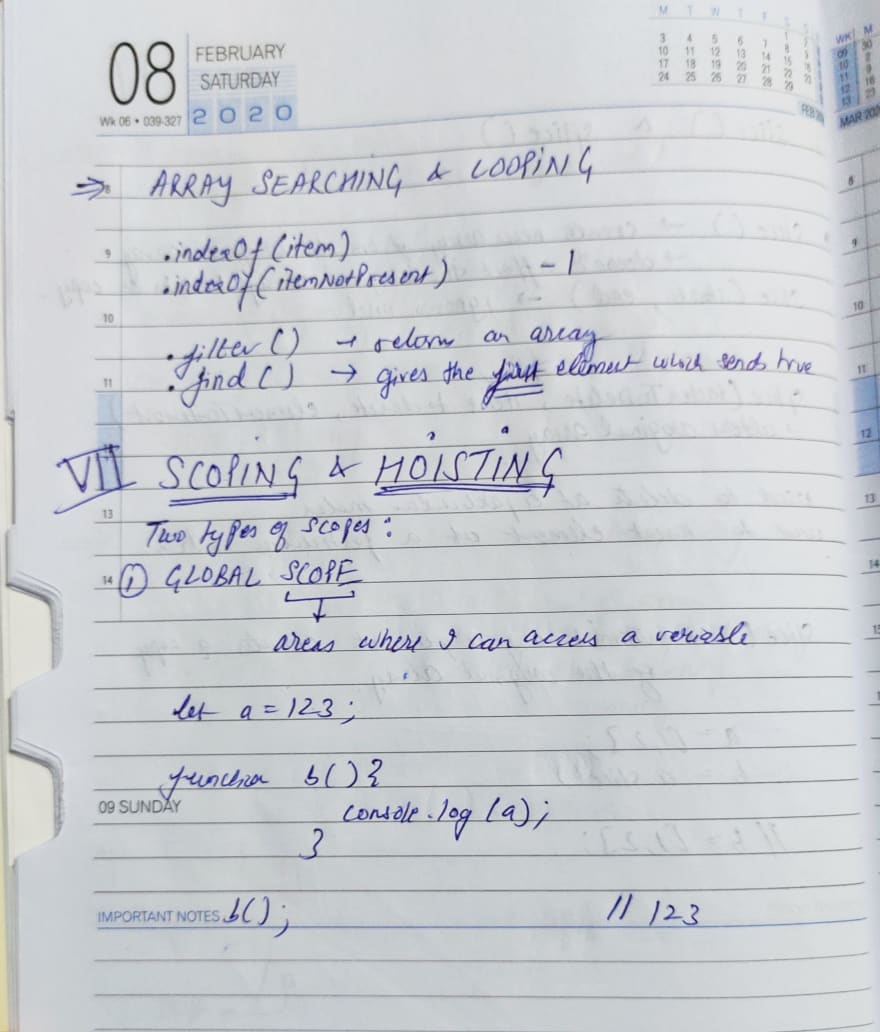 08
FEBRUARY
SATURDAY
2020
Wk 06 • 039-327
M T W T F S S
1 2
3 4 5 6 7 8 9
10 11 12 13 14 15 16
17 18 19 20 21 22 23
24 25 26 27 28 29
WK M
09 30
10 2
11 9
12 16
13 23
MAR 202
8
⇒ ARRAY SEARCHING & LOOPING
9 .indexOf (item)
.indexOf (itemNotPresent) -1
10
.filter () → return an array
11 .find () → gives the first element which sends true
VII SCOPING & HOISTING
13
Two types of scopes :
14 ① GLOBAL SCOPE
areas where I can access a variable
let a = 123 ;
function b() {
09 SUNDAY
console.log (a) ;
}
IMPORTANT NOTES b() ; // 123
8
9
10
11
12
13
14